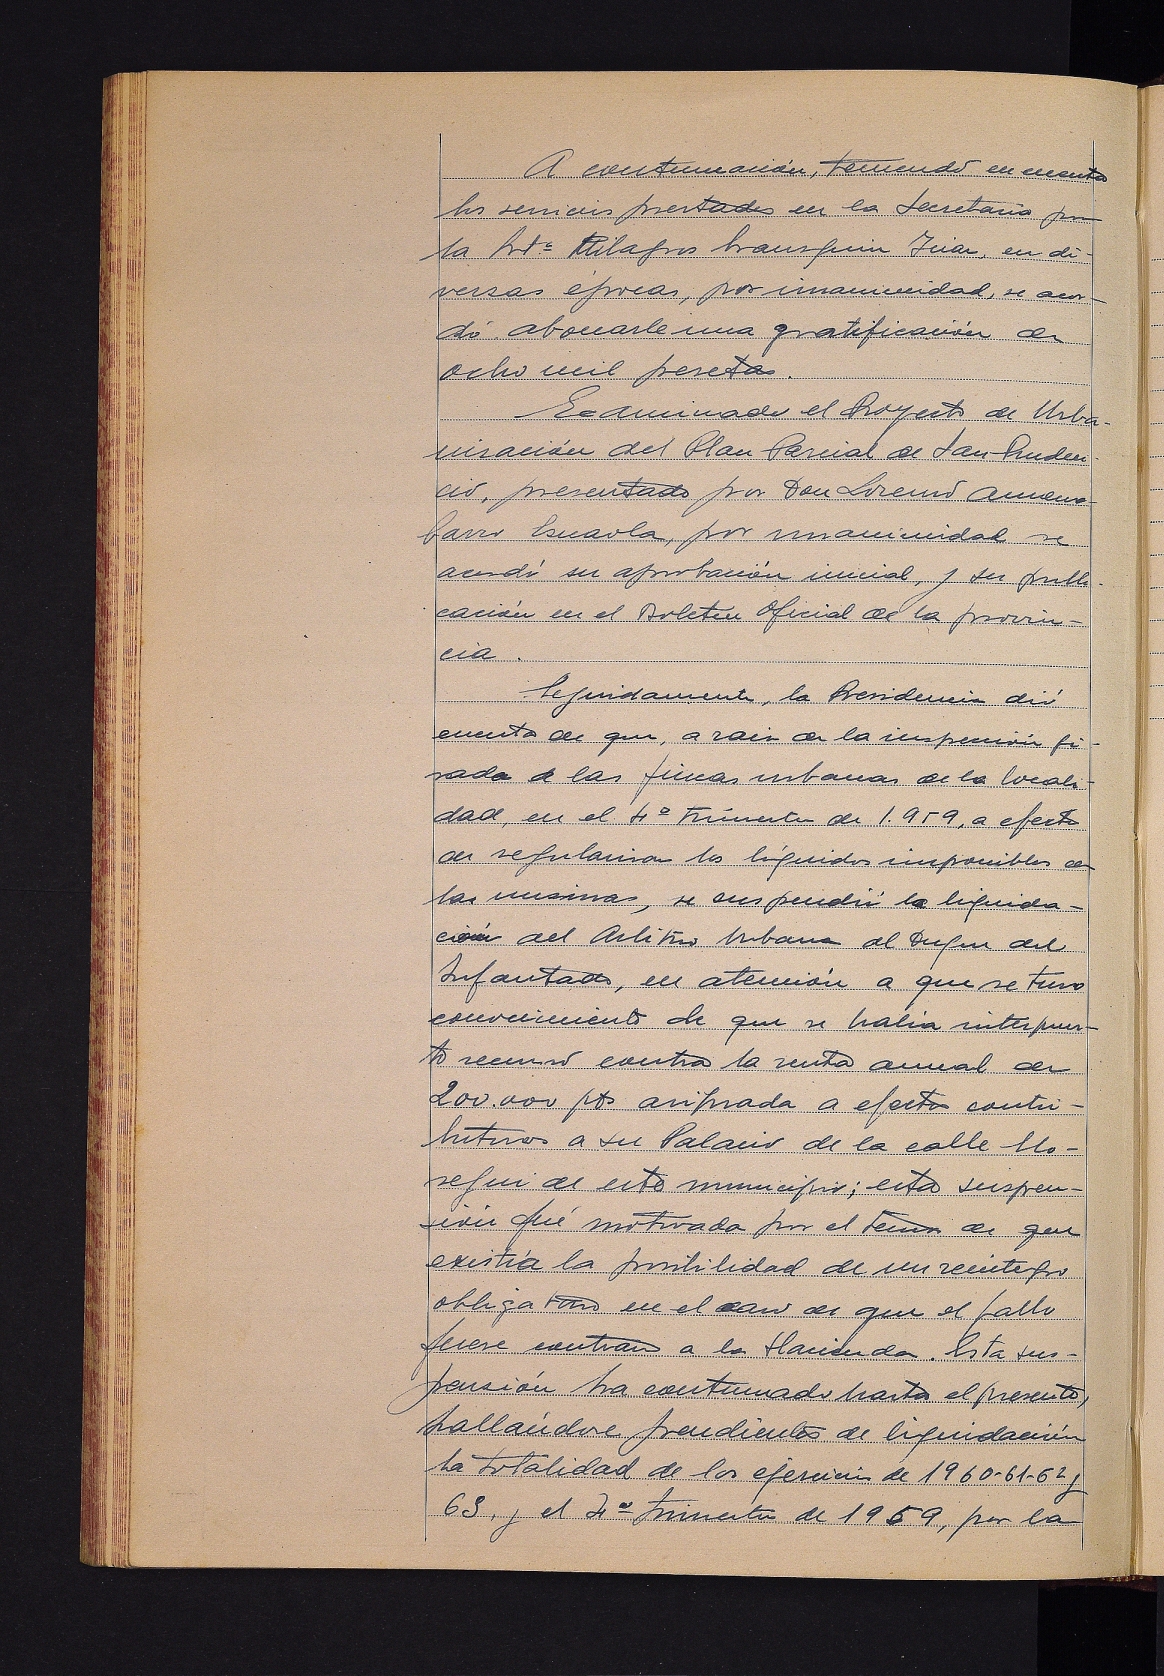 A continuación, teniendo en cuenta
los servicios prestados en la Secretaría por
la Srtª Milagros en di-
versas épocas, por unanimidad, se acor-
dó abonarle una gratificación de
ocho mil pesetas.
Examinado el Proyecto de Urba-
nización del Plan Parcial de San Pruden-
cio, presentado por Don Lorenzo Amena-
barro por unanimidad se
acordó su aprobación inicial, y su publi-
cación en el Boletín Oficial de la provin-
cia.
Seguidamente, la Presidencia dió
cuenta de que, a raiz de la inspección gi-
rada a las fincas urbanas de la locali-
dad, en el 4º trimestre de 1.959, a efecto
de regularizar los líquidos imponibles de
las mismas, se suspendió la liquida-
ción del Arbitrio Urbana al Duque del
Infantado, en atención a que se tuvo
conocimiento de que se había interpues-
to recurso contra la renta anual de
200.000 pts asignada a efectos contri-
butivos a su Palacio de la calle Uo-
segui de este municipio; esta suspen-
sión fué motivada por el temor de que
existía la posibilidad de un reintegro
obligatorio en el caso de que el fallo
fuese contrario a la Hacienda. Esta sus-
pensión ha continuado hasta el presente,
hallándose pendientes de liquidación
la totalidad de los ejercicios de 1960-61-62 y
63, y el 4º trimestre de 1959, por la